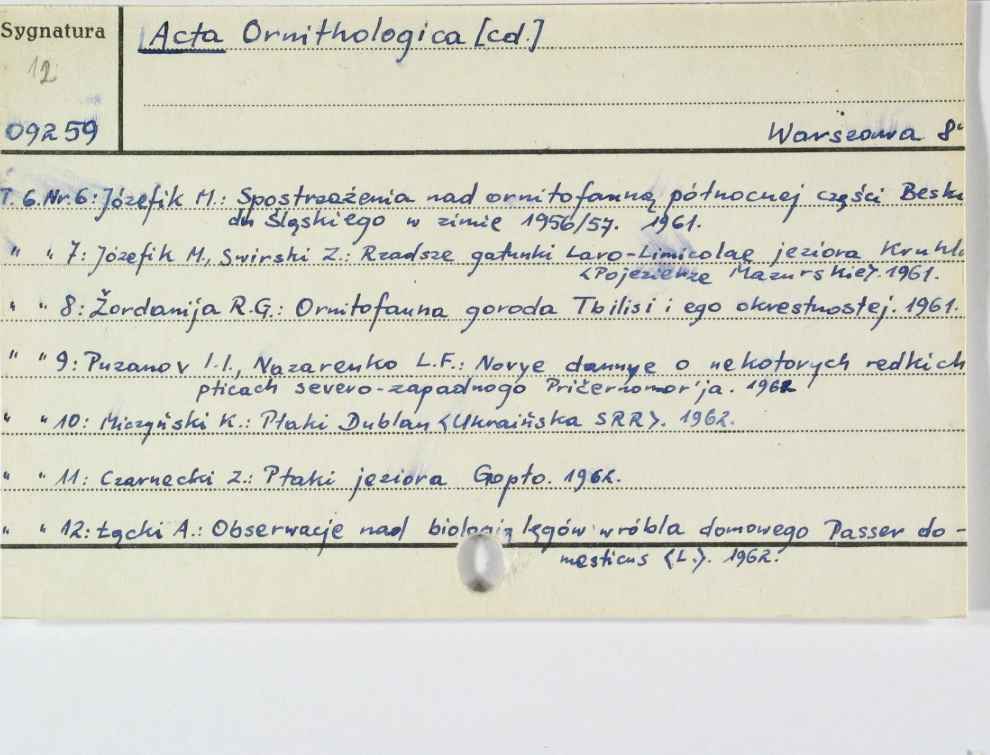 Sygnatura
Acta Ornithologica [cd.]
12
09259
Warszawa 8°
T. 6. Nr. 6: Józefik M.: Spostrzeżenia nad ornitofauną północnej części Besku
du Śląskiego w zimie 1956/57. 1961.
" " 7: Józefik M., Swirski Z.: Rzadsze gatunki Laro-Limicolae jeziora Kruhl
<Pojezierze Mazurskie>. 1961.
" " 8: Žordanija R.G.: Ornitofauna goroda Tbilisi i ego okrestnostej. 1961.
" " 9: Puzanov I.I., Nazarenko L.F.: Novye dannye o nekotorych redkich
pticach severo-zapadnogo Pričernomor'ja. 1962
" " 10: Miczyński K.: Ptaki Dublan <Ukraińska SRR>. 1962.
" " 11: Czarnecki Z.: Ptaki jeziora Gopło. 1962.
" " 12: Łącki A.: Obserwacje nad biologią lęgów wróbla domowego Passer do-
mesticus <L.>. 1962.